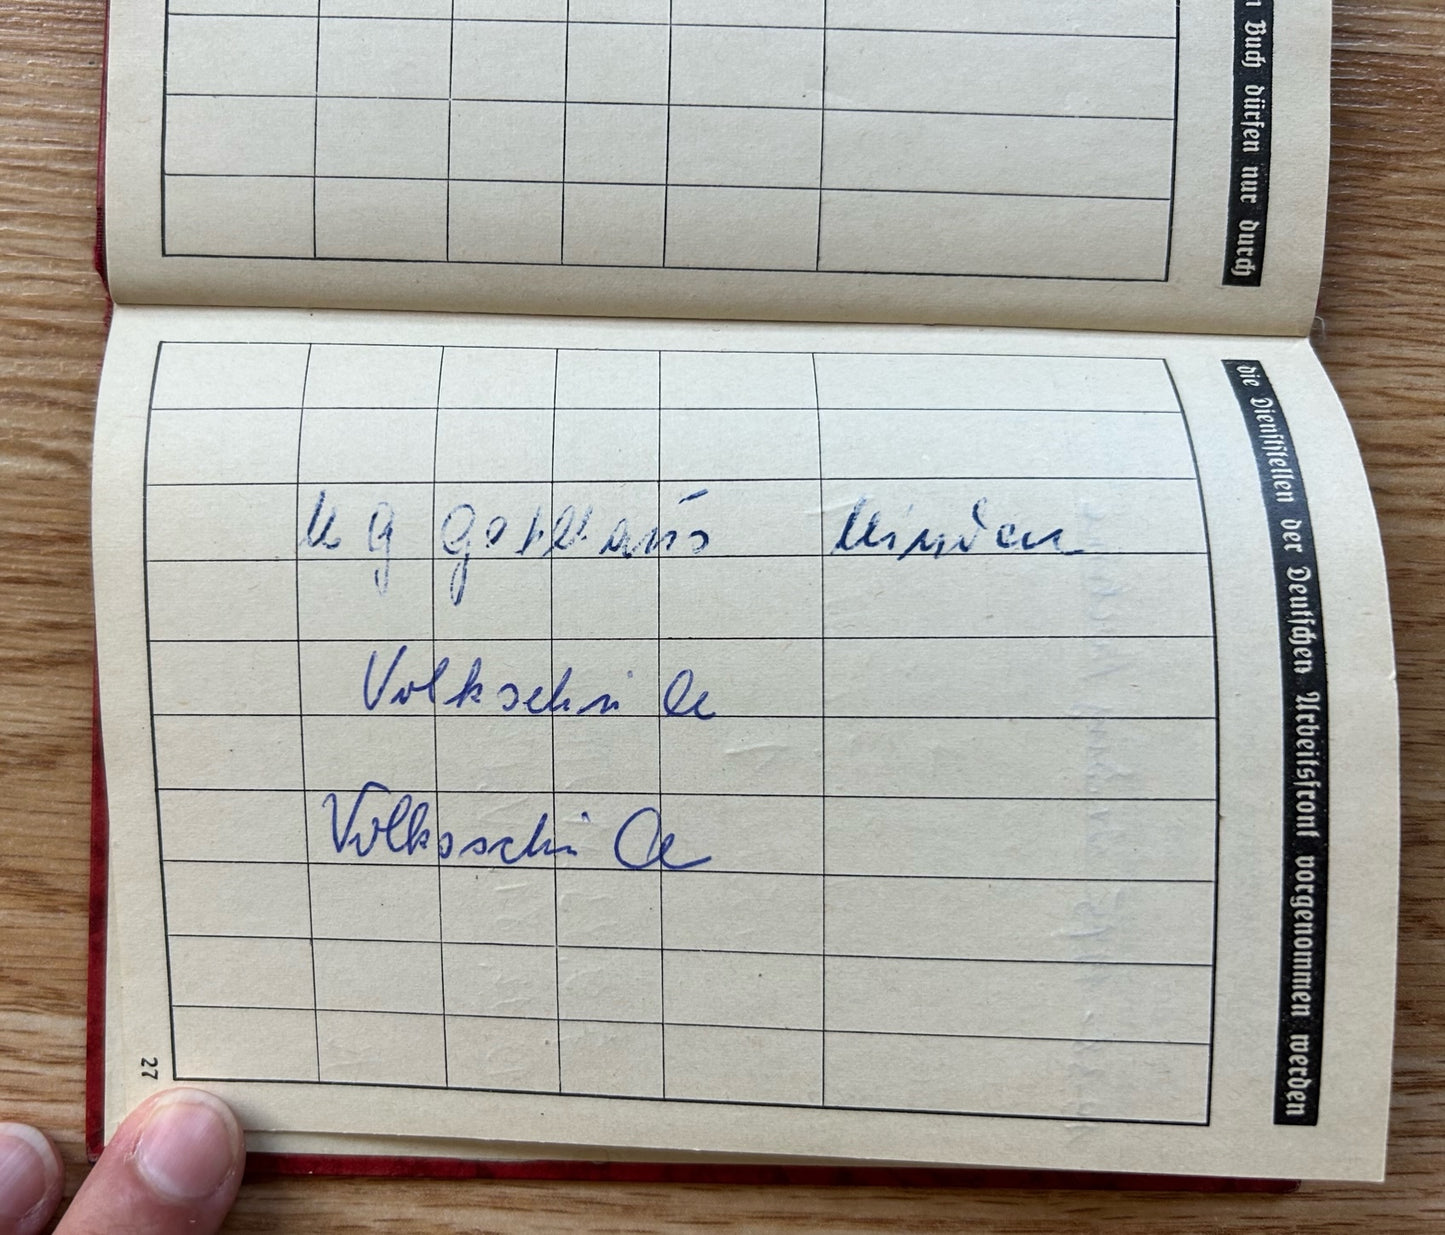 n Buch dürfen nur durch
die Dienststellen der Deutschen Arbeitsfront vorgenommen werden
Minden
Volksschule
Volksschule
27